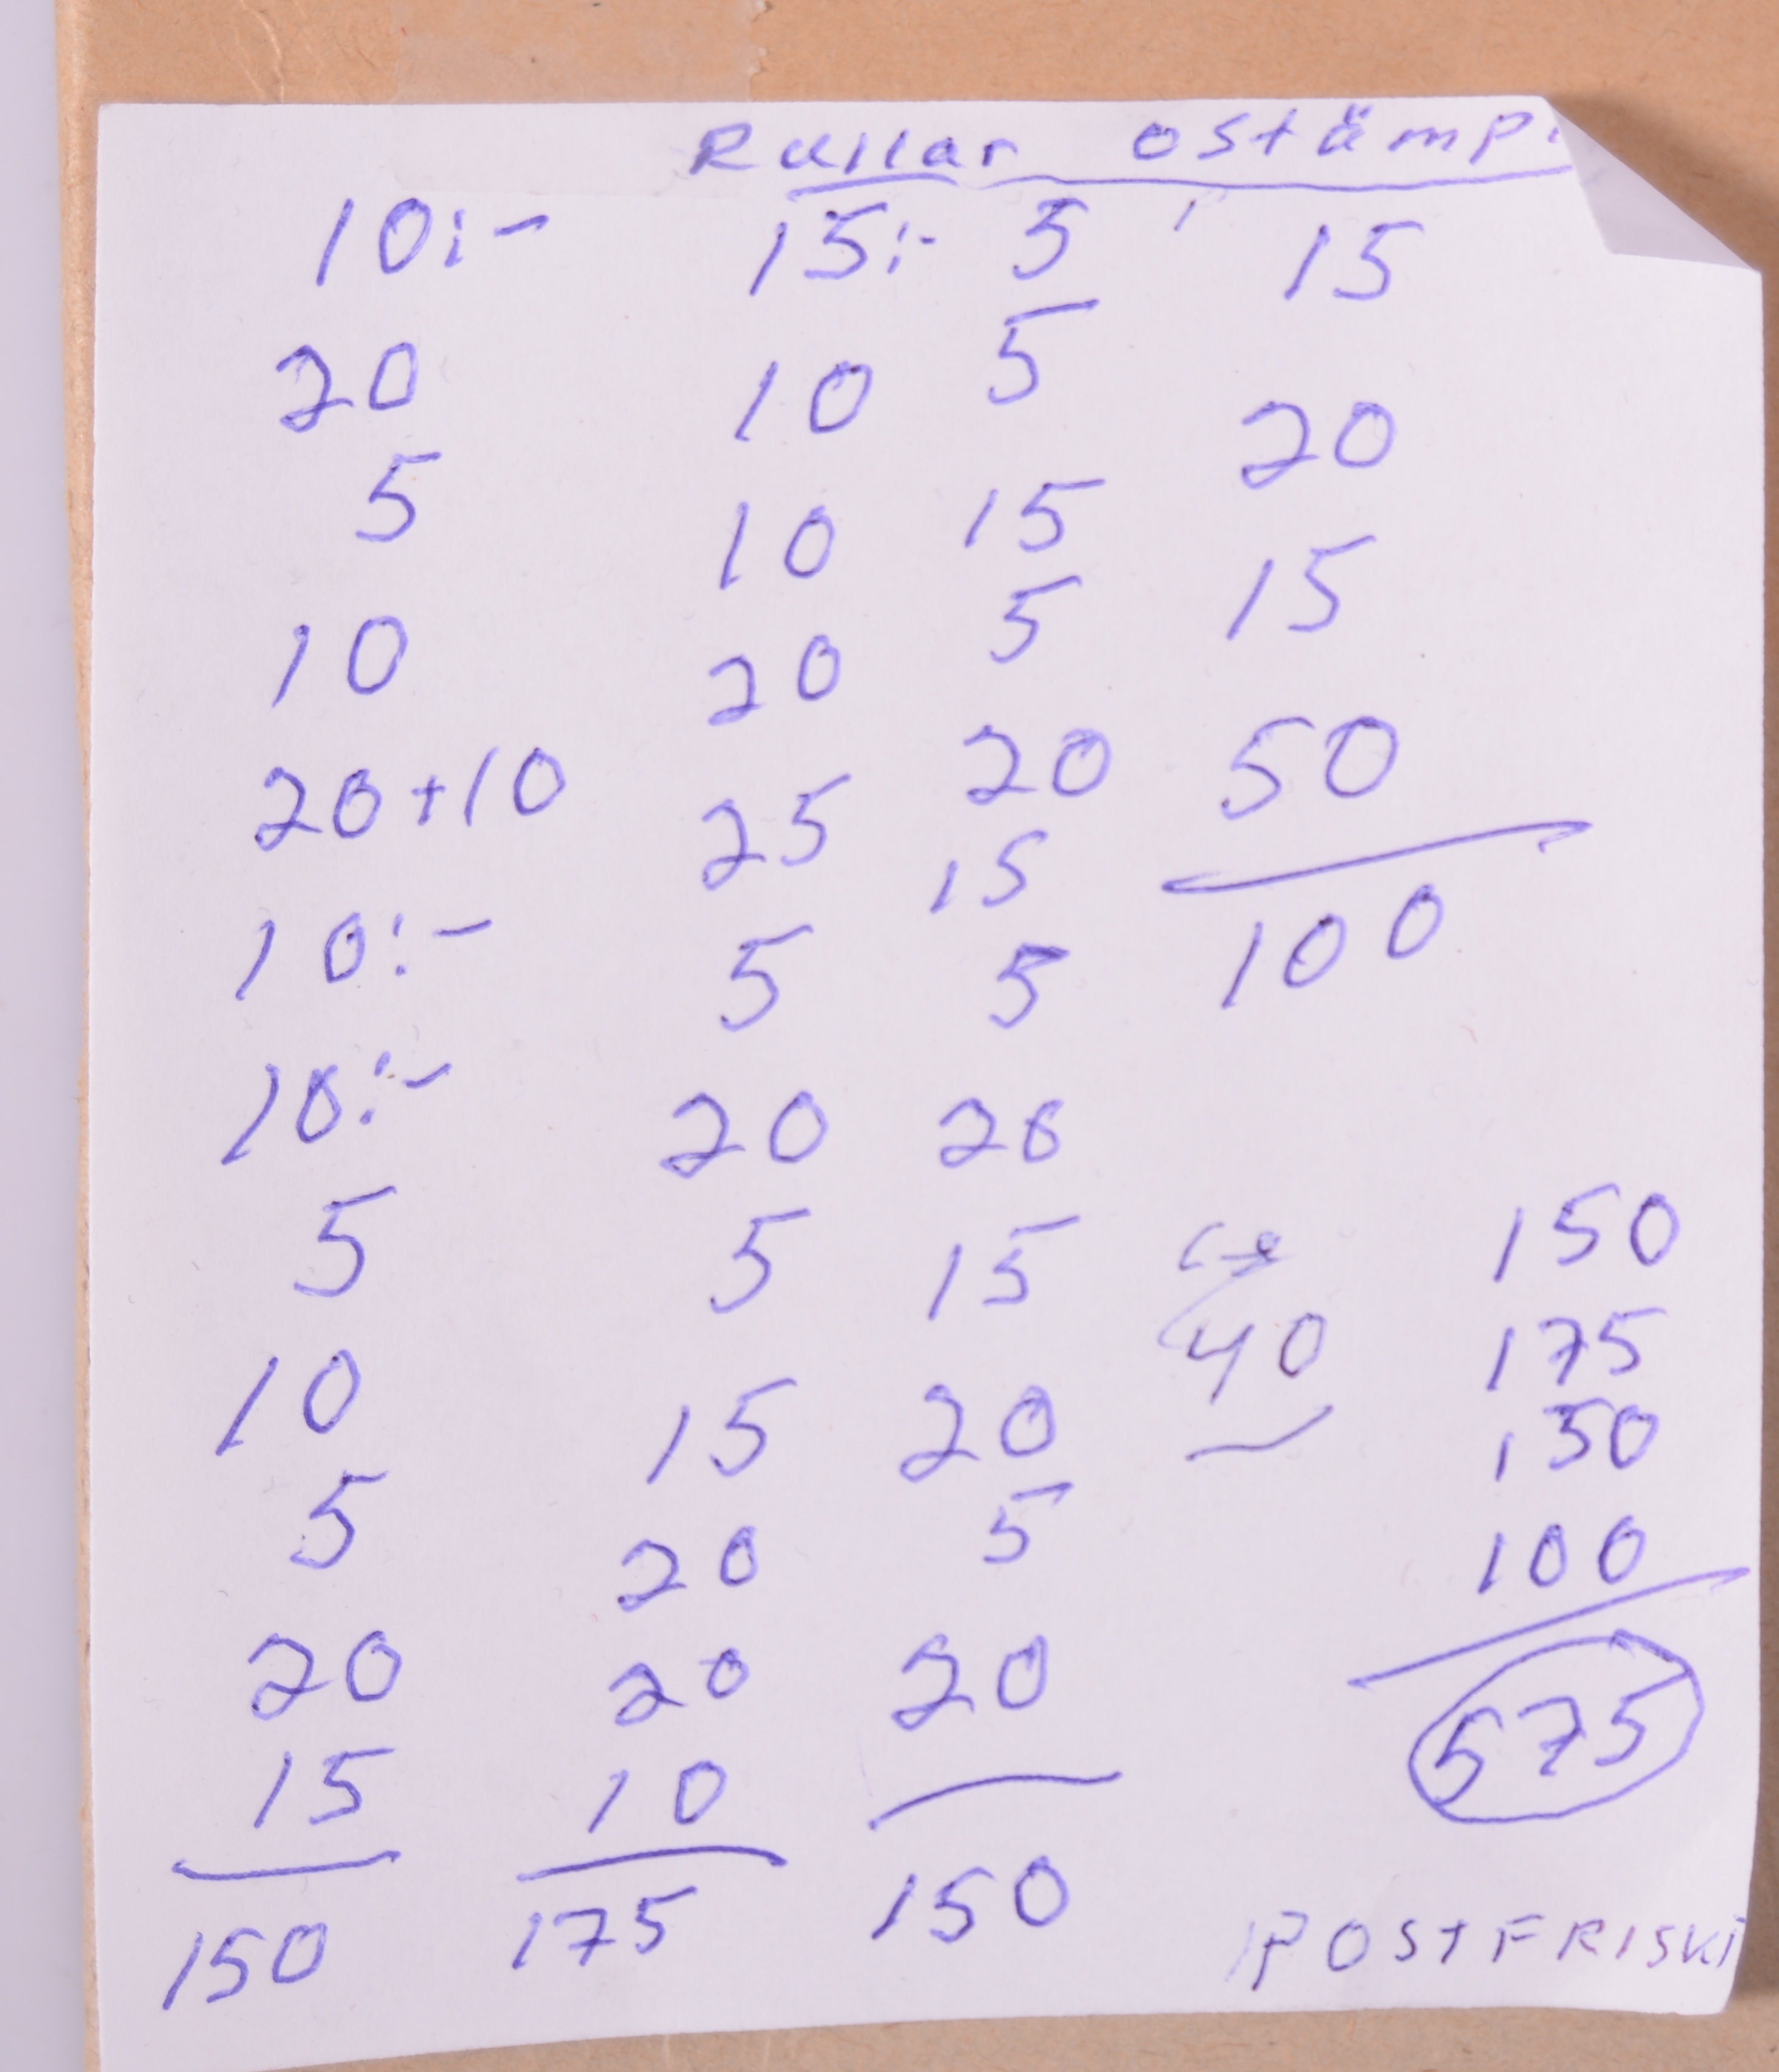 Rullar ostämp.
10:-
20
5
10
20+10
10:-
10:-
5
10
5
20
15
150
15:-
10
10
20
25
5
20
5
15
20
20
10
175
5
5
15
5
20
15
5
20
15
20
5
20
150
15
20
15
50
100
40
150
175
150
100
575
POSTFRISKT